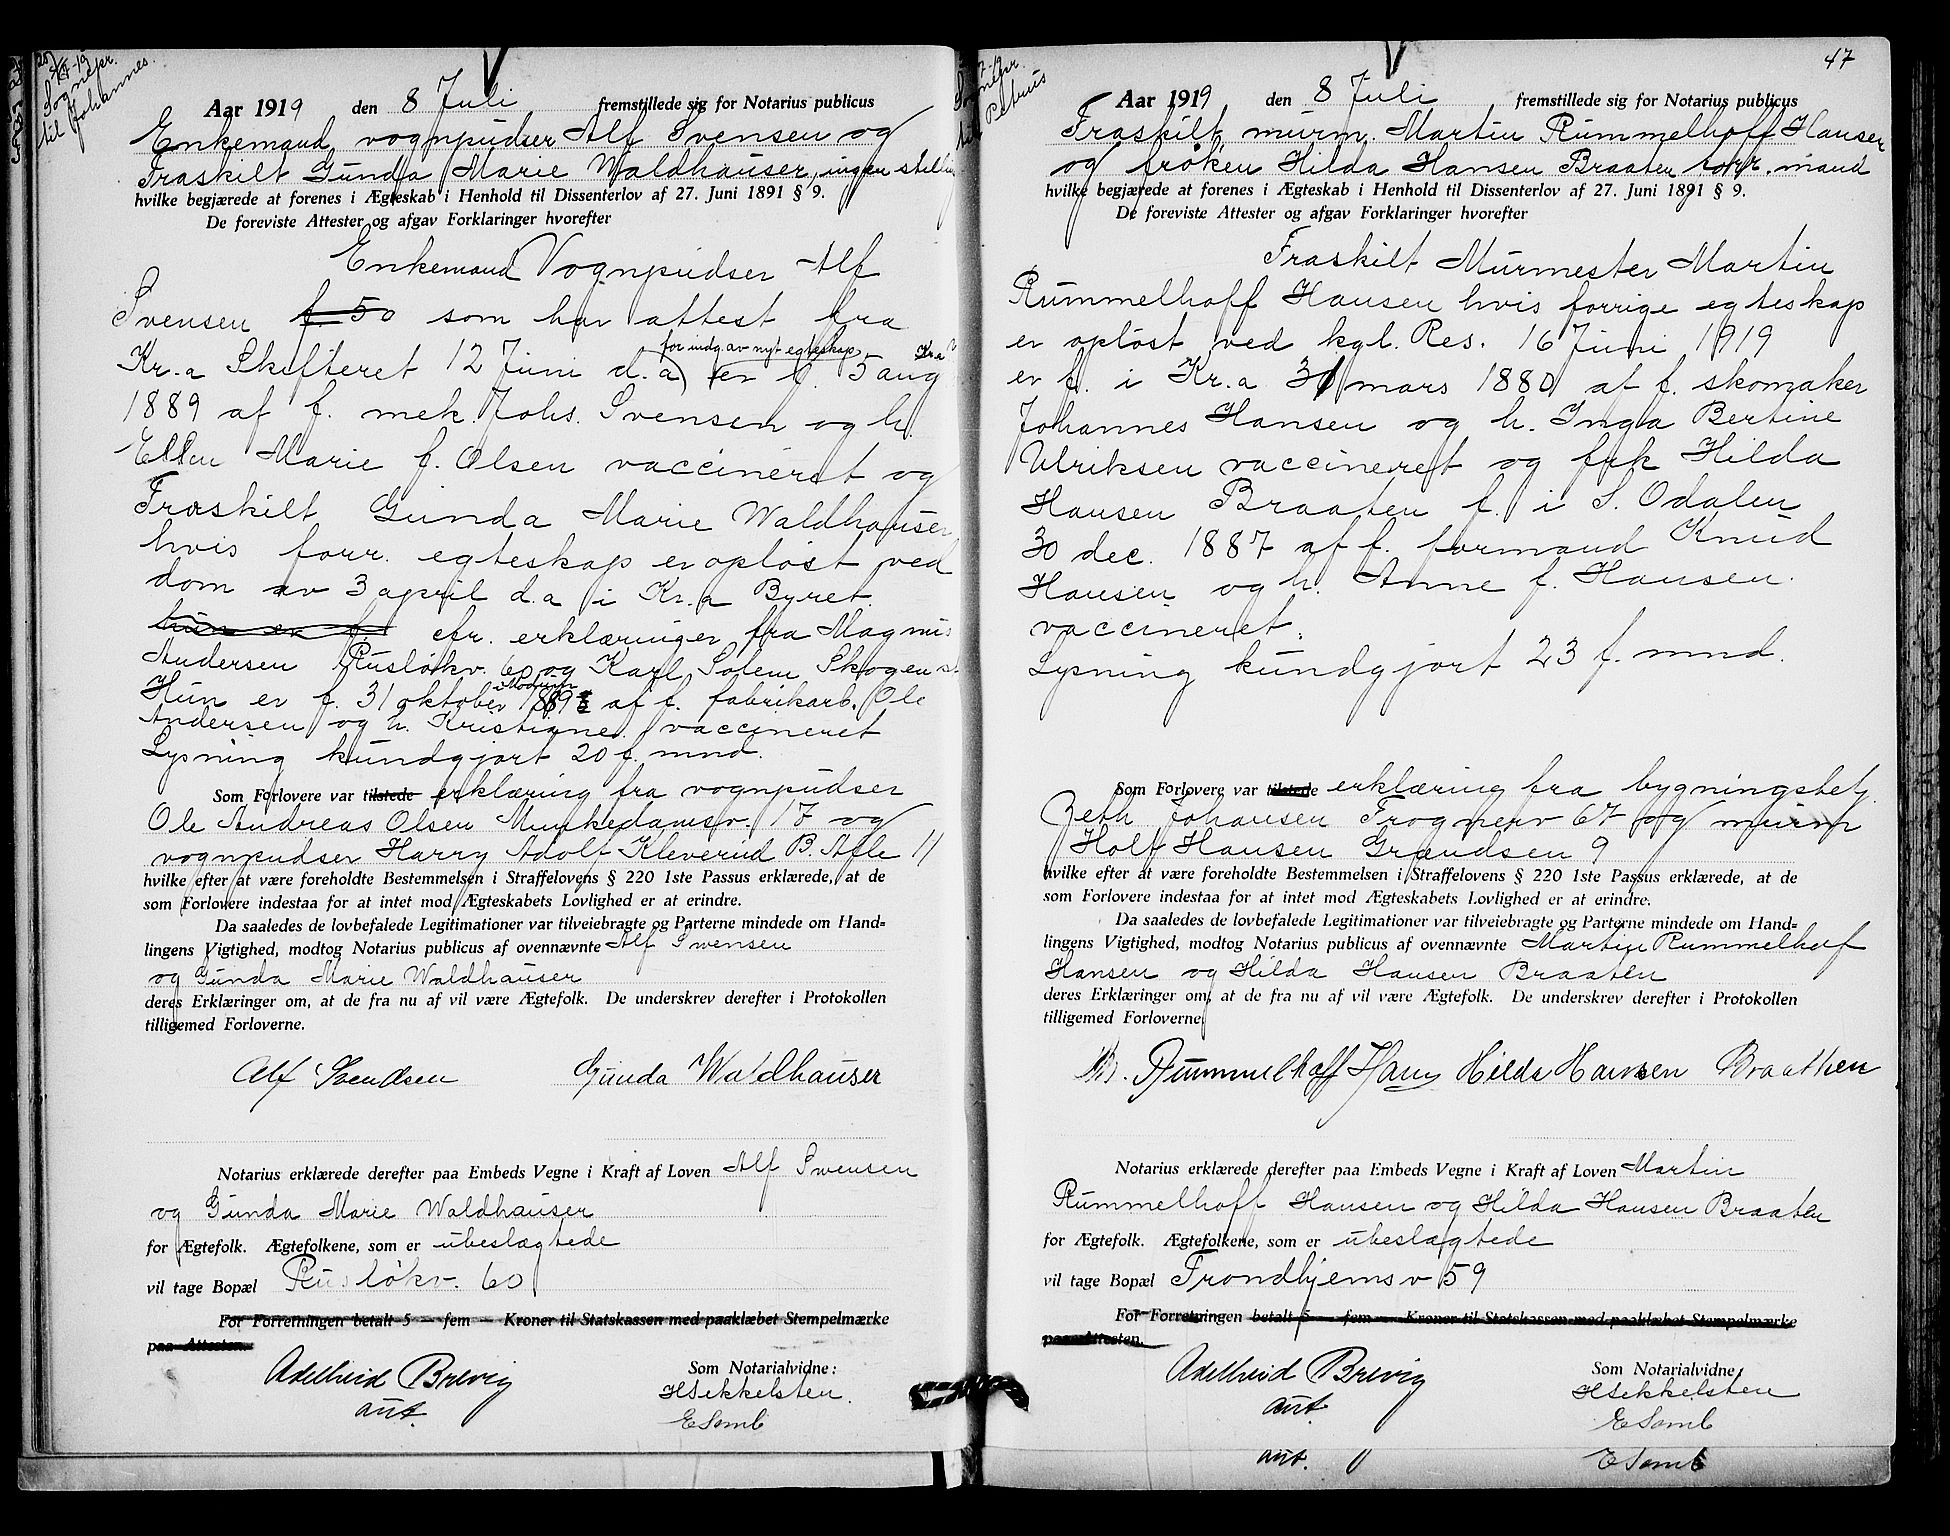 25/7-19
Sognepr.
til Johannes.
Aar 1919 den 8 Juli fremstillede sig for Notarius publicus
Enkemand vognpudser Alf Svensen og
Fraskilt Gunda Marie Waldhauser, ingen stelling
hvilke begjærede at forenes i Ægteskab i Henhold til Dissenterlov af 27. Juni 1891 § 9.
De foreviste Attester og afgav Forklaringer hvorefter
Enkemand Vognpudser Alf
Svensen f. 50 som har attest fra
for indg. av nyt egteskap Kra
Kr.a Skifteret 12 Juni d.a) er f. 5 aug
1889 af f. mek. Johs. Svensen og h.
Ellen Marie f. Olsen vaccineret og
Fraskilt Gunda Marie Waldhauser
hvis forr. egteskap er opløst ved
dom av 3 april d.a i Kr.a Byret.
hun er f. cfr. erklæringer fra Magnus
Andersen Rusløkv. 60 og Karl Solem Skogens
i Modum
Hun er f. 31 oktober af f. fabrikarb. Ole
Andersen og h. Kristiane. vaccineret
Lysning kundgjort 20 f. mnd.
Som Forlovere var tilstede erklæring fra vognpudser
Ole Andreas Olsen Munkedamsv. 17 og
vognpudser Harry Adolf Kleverud B. Alle 11
hvilke efter at være foreholdte Bestemmelsen i Straffelovens § 220 1ste Passus erklærede, at de
som Forlovere indestaa for at intet mod Ægteskabets Lovlighed er at erindre.
Da saaledes de lovbefalede Legitimationer var tilveiebragte og Parterne mindede om Hand=
lingens Vigtighed, modtog Notarius publicus af ovennævnte Alf Svensen
og Gunda Marie Waldhauser
deres Erklæringer om, at de fra nu af vil være Ægtefolk. De underskrev derefter i Protokollen
tilligemed Forloverne.
Alf Svendsen Gunda Waldhauser
Notarius erklærede derefter paa Embeds Vegne i Kraft af Loven Alf Svensen
og Gunda Marie Waldhauser
for Ægtefolk. Ægtefolkene, som er ubeslægtede
vil tage Bopæl Rusløkv. 60
For Forretningen betalt 5 — fem — Kroner til Statskassen med paaklæbet Stempelmærke
paa Attesten.
Adelheid Brevig
aut.
Som Notarialvidne:
HSikkelsten
ESomb
47
7-19
Sognepr.
til Petrus
Aar 1919 den 8 Juli fremstillede sig for Notarius publicus
Fraskilt murm. Martin Rummelhoff Hansen
og frøken Hilda Hansen Braaten forr. mand
hvilke begjærede at forenes i Ægteskab i Henhold til Dissenterlov af 27. Juni 1891 § 9.
De foreviste Attester og afgav Forklaringer hvorefter
Fraskilt Murmester Martin
Rummelhoff Hansen hvis forrige egteskap
er opløst ved kgl. Res. 16 Juni 1919
er f. i Kr.a 31 mars 1880 af f. skomaker
Johannes Hansen og h. Inga Bertine
Ulriksen vaccineret og frk Hilda
Hansen Braaten f. i S. Odalen
30 dec. 1887 af f. formand Knud
Hansen og h. Anne f. Hansen.
vaccineret.
Lysning kundgjort 23 f. mnd.
Som Forlovere var tilstede erklæring fra bygningsbetj.
Zeth Johansen Frognerv 67 og murm
Holf Hansen Grændsen 9
hvilke efter at være foreholdte Bestemmelsen i Straffelovens § 220 1ste Passus erklærede, at de
som Forlovere indestaa for at intet mod Ægteskabets Lovlighed er at erindre.
Da saaledes de lovbefalede Legitimationer var tilveiebragte og Parterne mindede om Hand=
lingens Vigtighed, modtog Notarius publicus af ovennævnte Martin Rummelhof
Hansen og Hilda Hansen Braaten
deres Erklæringer om, at de fra nu af vil være Ægtefolk. De underskrev derefter i Protokollen
tilligemed Forloverne.
M. Rummelhoff Hans Hilda Hansen Braathen
Notarius erklærede derefter paa Embeds Vegne i Kraft af Loven Martin
Rummelhoff Hansen og Hilda Hansen Braaten
for Ægtefolk. Ægtefolkene, som er ubeslægtede
vil tage Bopæl Trondhjemsv 59
For Forretningen betalt 5 — fem — Kroner til Statskassen med paaklæbet Stempelmærke
paa Attesten.
Adelheid Brevig
aut.
Som Notarialvidne:
HSikkelsten
ESomb
aut.
ESomb